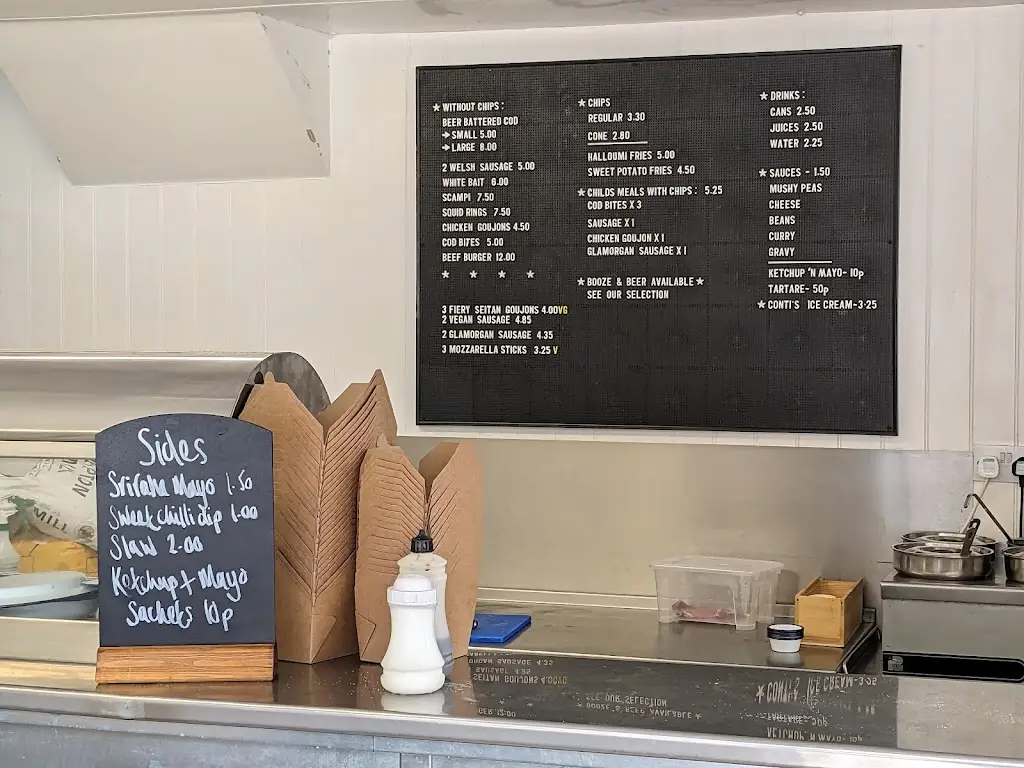 ★ WITHOUT CHIPS :
BEER BATTERED COD
➔ SMALL 5.00
➔ LARGE 8.00
2 WELSH SAUSAGE 5.00
WHITE BAIT 6.00
SCAMPI 7.50
SQUID RINGS 7.50
CHICKEN GOUJONS 4.50
COD BITES 5.00
BEEF BURGER 12.00
★ ★ ★ ★
3 FIERY SEITAN GOUJONS 4.00VG
2 VEGAN SAUSAGE 4.85
2 GLAMORGAN SAUSAGE 4.35
3 MOZZARELLA STICKS 3.25 V
★ CHIPS
REGULAR 3.30
CONE 2.80
HALLOUMI FRIES 5.00
SWEET POTATO FRIES 4.50
★ CHILDS MEALS WITH CHIPS : 5.25
COD BITES X 3
SAUSAGE X 1
CHICKEN GOUJON X 1
GLAMORGAN SAUSAGE X 1
★ BOOZE & BEER AVAILABLE ★
SEE OUR SELECTION
★ DRINKS :
CANS 2.50
JUICES 2.50
WATER 2.25
★ SAUCES - 1.50
MUSHY PEAS
CHEESE
BEANS
CURRY
GRAVY
KETCHUP 'N MAYO- 10p
TARTARE- 50p
★ CONTI'S ICE CREAM-3.25
Sides
Sriraha Mayo 1.50
Sweet chilli dip 1.00
Slaw 2.00
Ketchup + Mayo
Sachets 10p
MILL